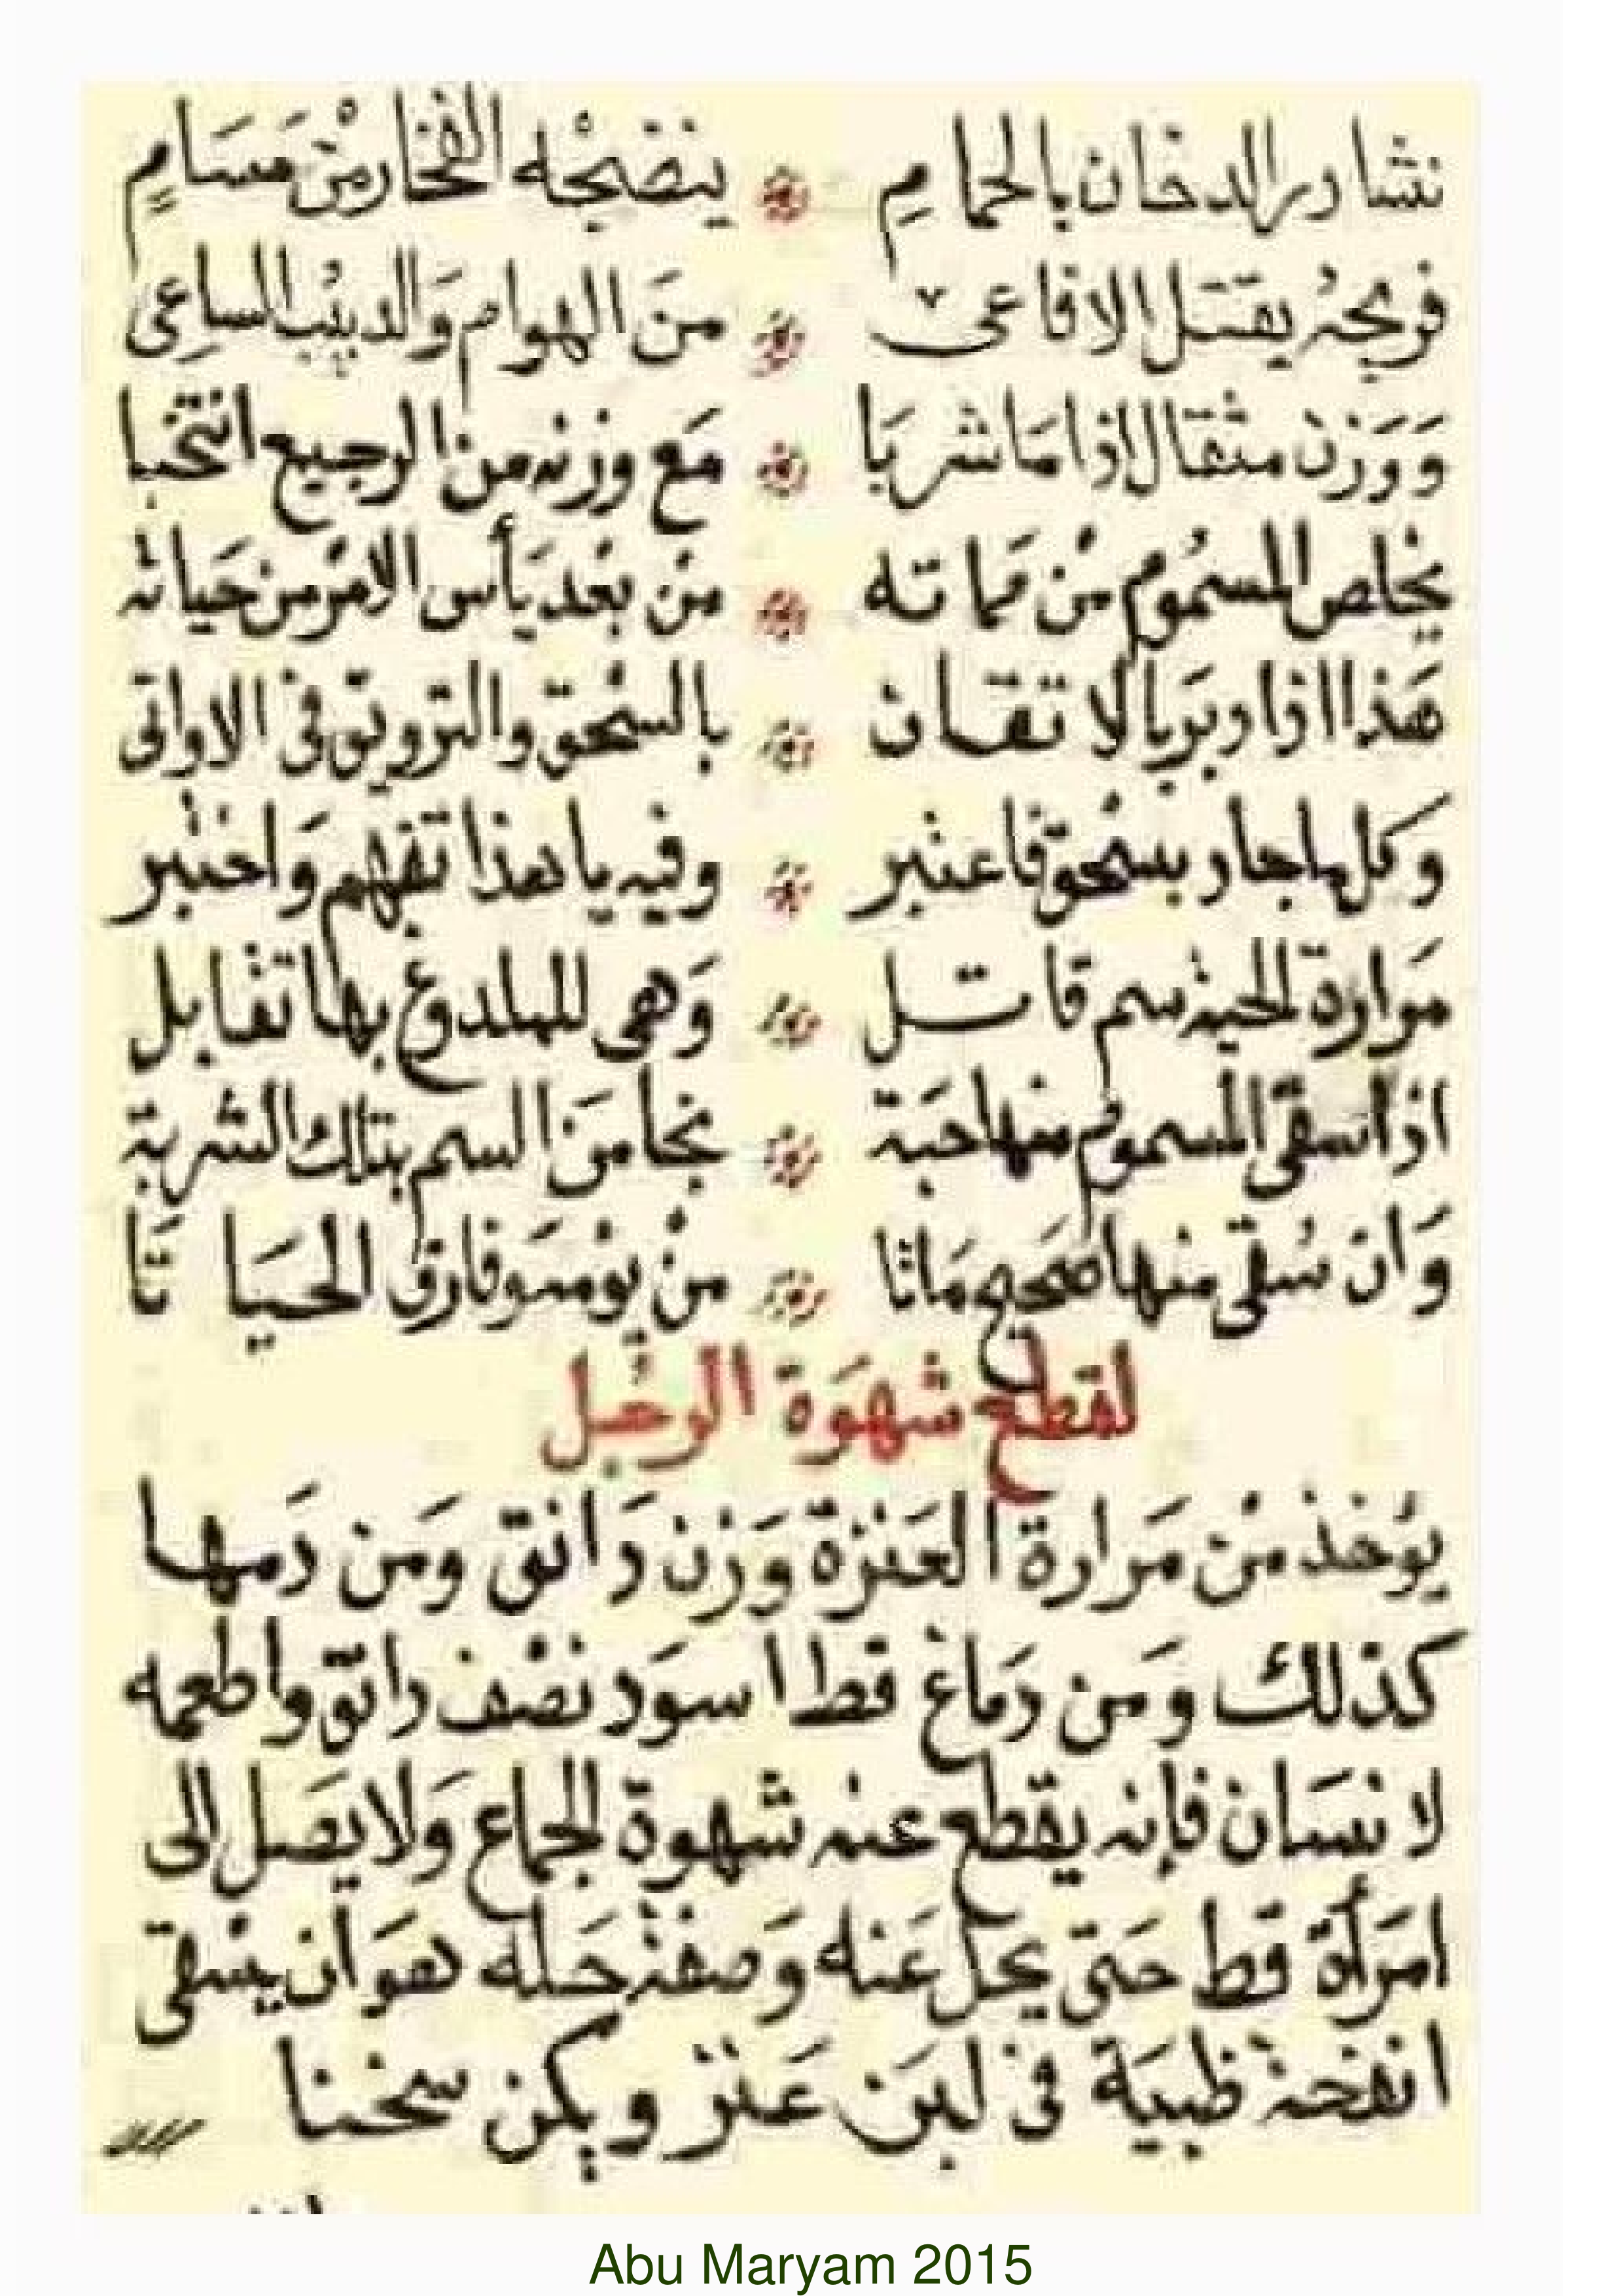 نشادر الدخان بالحمامِ ينضجْه الفخار منْ مسَامٍ
فريحُه يقتَل الافاعى منَ الهوام وَالدبيْب الساعِى
وَوَزن مثقال اذا مَا شربَا مَع وزنه من الرجيع انتخبا
يخلص المسمُوم منْ مماته منْ بعْد يَأس الامْر من حَياته
هَذا اذا دبرَ بالاتقان بالسحْق والترويق فى الاوانى
وَكل ما جاد بسحْق فاعتبر وفيه يا هذا تفهم وَاختبر
مَرارة الحية سم قاتل وَهى للملدوغ بها تقابل
اذا سقى المسموم منها حَبة نجا منَ السم بتلك الشربَة
وَان سُقى منها صَحيح مَاتا منْ يوْمه وَفارق الحيَا تَا
لقطع شهوَة الرجُل
يوْخذ منْ مَرارة العَنزة وَزن دَانق وَمَن دَمها
كذلك وَمن دمَاغ قط اسوَد نصْف دانق واطعمه
لانسَان فإنه يقطع عنه شهوة الجماع وَلا يصَل الى
امرَأة قط حَتى يحَل عَنه وَصفة حَله هوَ ان يسْقى
انفحة ظبيَة فى لبَن عَنز ويكن سخنا
Abu Maryam 2015